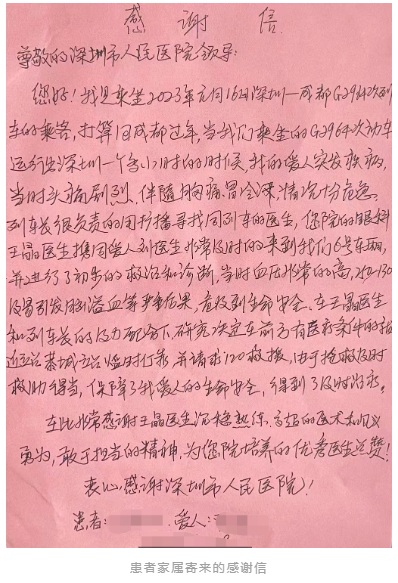 感谢信
尊敬的深圳市人民医院领导:
您好!我是乘坐2023年元月16日深圳一成都G2964次列
车的乘客,打算回成都过年,当我们乘坐的G2964次动车
运行出深圳一个多小时的时候,我的爱人突发疾病,
当时头痛剧烈、伴随胸痛冒冷汗,情况十分危急。
列车长很负责的用广播寻找同列车的医生,您院的眼科
王晶医生携同爱人刘医生非常及时的来到我们6号车厢,
并进行了初步的救治和诊断,当时血压非常的高,
极易引发脑溢血等严重后果,直接到生命安全。在王晶医生
和列车长的极力配合下,研究决定在前方有医疗条件的
近 恭城 临时停靠,并请求120救援,由于抢救及时
救助得当,保障了我爱人的生命安全,得到了及时治疗。
在此非常感谢王晶医生沉稳熟练、高超的医术和见义
勇为,敢于担当的精神,为您院培养的优秀医生点赞!
衷心感谢深圳市人民医院!
患者: 爱人:
患者家属寄来的感谢信